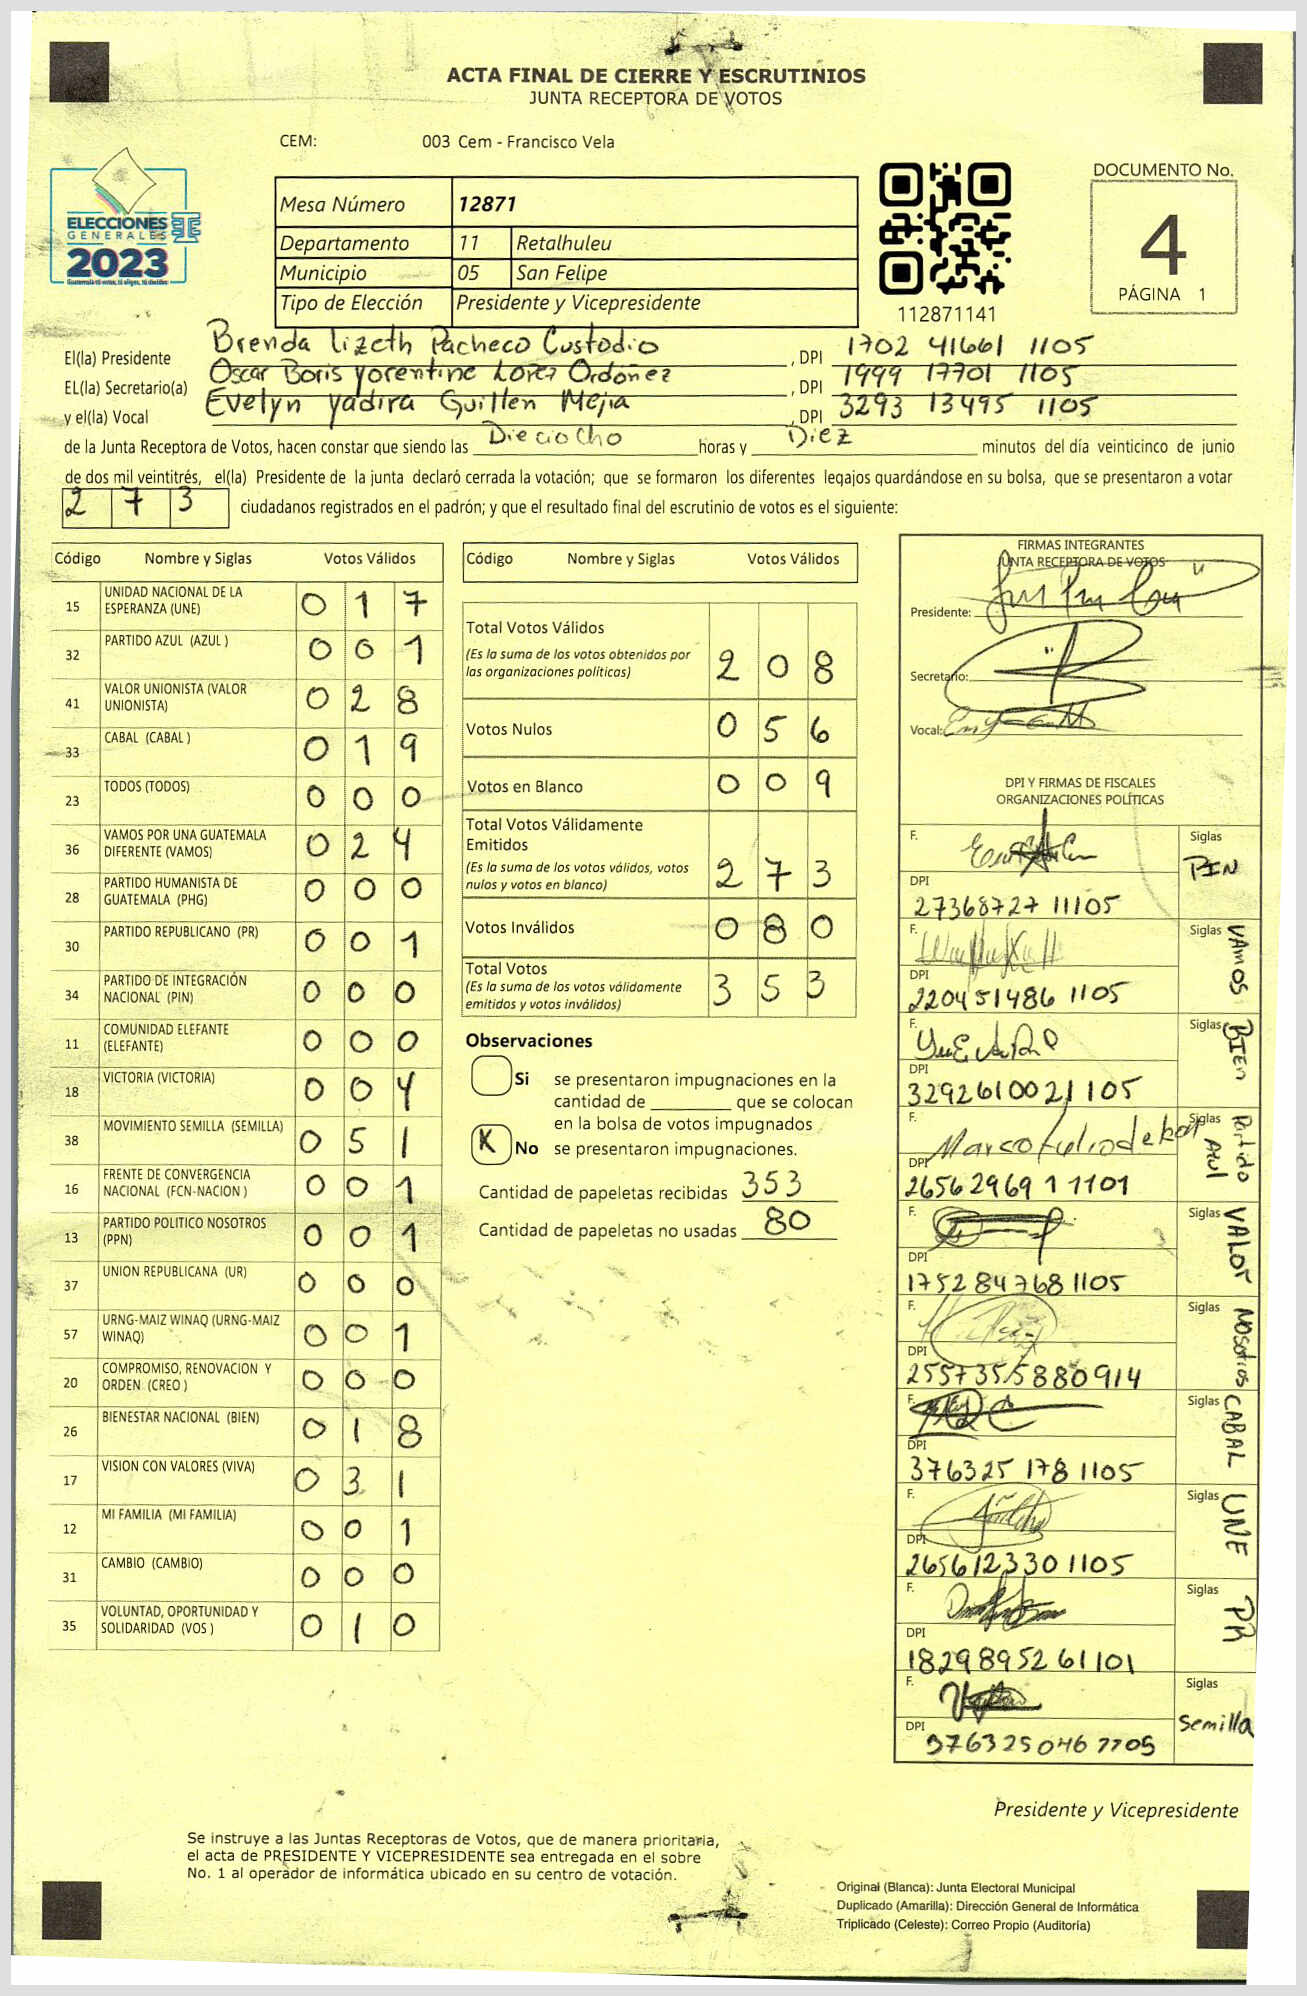 ACTA FINAL DE CIERRE Y ESCRUTINIOS
JUNTA RECEPTORA DE VOTOS
CEM: 003 Cem - Francisco Vela
ELECCIONES
GENERALES
2023
Guatemala tú votas, tú eliges, tú decides
Mesa Número 12871
Departamento 11 Retalhuleu
Municipio 05 San Felipe
Tipo de Elección Presidente y Vicepresidente
112871141
DOCUMENTO No.
4
PÁGINA 1
El(la) Presidente Brenda Lizeth Pacheco Custodio , DPI 1702 41661 1105
EL(la) Secretario(a) Oscar Boris Yorentine Lopez Ordoñez , DPI 1999 17701 1105
y el(la) Vocal Evelyn Yadira Guillen Mejia , DPI 3293 13495 1105
de la Junta Receptora de Votos, hacen constar que siendo las Dieciocho horas y Diez minutos del día veinticinco de junio
de dos mil veintitrés, el(la) Presidente de la junta declaró cerrada la votación; que se formaron los diferentes legajos guardándose en su bolsa, que se presentaron a votar
273 ciudadanos registrados en el padrón; y que el resultado final del escrutinio de votos es el siguiente:
Código Nombre y Siglas Votos Válidos
15 UNIDAD NACIONAL DE LA ESPERANZA (UNE) 0 1 7
32 PARTIDO AZUL (AZUL ) 0 0 1
41 VALOR UNIONISTA (VALOR UNIONISTA) 0 2 8
33 CABAL (CABAL ) 0 1 9
23 TODOS (TODOS) 0 0 0
36 VAMOS POR UNA GUATEMALA DIFERENTE (VAMOS) 0 2 4
28 PARTIDO HUMANISTA DE GUATEMALA (PHG) 0 0 0
30 PARTIDO REPUBLICANO (PR) 0 0 1
34 PARTIDO DE INTEGRACIÓN NACIONAL (PIN) 0 0 0
11 COMUNIDAD ELEFANTE (ELEFANTE) 0 0 0
18 VICTORIA (VICTORIA) 0 0 4
38 MOVIMIENTO SEMILLA (SEMILLA) 0 5 1
16 FRENTE DE CONVERGENCIA NACIONAL (FCN-NACION ) 0 0 1
13 PARTIDO POLITICO NOSOTROS (PPN) 0 0 1
37 UNION REPUBLICANA (UR) 0 0 0
57 URNG-MAIZ WINAQ (URNG-MAIZ WINAQ) 0 0 1
20 COMPROMISO, RENOVACION Y ORDEN (CREO ) 0 0 0
26 BIENESTAR NACIONAL (BIEN) 0 1 8
17 VISION CON VALORES (VIVA) 0 3 1
12 MI FAMILIA (MI FAMILIA) 0 0 1
31 CAMBIO (CAMBIO) 0 0 0
35 VOLUNTAD, OPORTUNIDAD Y SOLIDARIDAD (VOS ) 0 1 0
Código Nombre y Siglas Votos Válidos
Total Votos Válidos
(Es la suma de los votos obtenidos por
las organizaciones políticas) 2 0 8
Votos Nulos 0 5 6
Votos en Blanco 0 0 9
Total Votos Válidamente
Emitidos
(Es la suma de los votos válidos, votos
nulos y votos en blanco) 2 7 3
Votos Inválidos 0 8 0
Total Votos
(Es la suma de los votos válidamente
emitidos y votos inválidos) 3 5 3
Observaciones
Si se presentaron impugnaciones en la
cantidad de ________ que se colocan
en la bolsa de votos impugnados
X No se presentaron impugnaciones.
Cantidad de papeletas recibidas 353
Cantidad de papeletas no usadas 80
FIRMAS INTEGRANTES
JUNTA RECEPTORA DE VOTOS
Presidente:
Secretario:
Vocal:
DPI Y FIRMAS DE FISCALES
ORGANIZACIONES POLÍTICAS
F. Siglas PIN
DPI 27368727 11105
F. Siglas VAMOS
DPI 220451486 1105
F. Siglas BIEN
DPI 3292610021105
F. Siglas Partido Azul
DPI 2656296911101
F. Siglas VALOR
DPI 1752847681105
F. Siglas NOSOTROS
DPI 2557355880914
F. Siglas CABAL
DPI 376325 178 1105
F. Siglas UNE
DPI 2656123301105
F. Siglas PR
DPI 1829895261101
F. Siglas Semilla
DPI 3763250461105
Presidente y Vicepresidente
Se instruye a las Juntas Receptoras de Votos, que de manera prioritaria,
el acta de PRESIDENTE Y VICEPRESIDENTE sea entregada en el sobre
No. 1 al operador de informática ubicado en su centro de votación.
Original (Blanca): Junta Electoral Municipal
Duplicado (Amarilla): Dirección General de Informática
Triplicado (Celeste): Correo Propio (Auditoría)